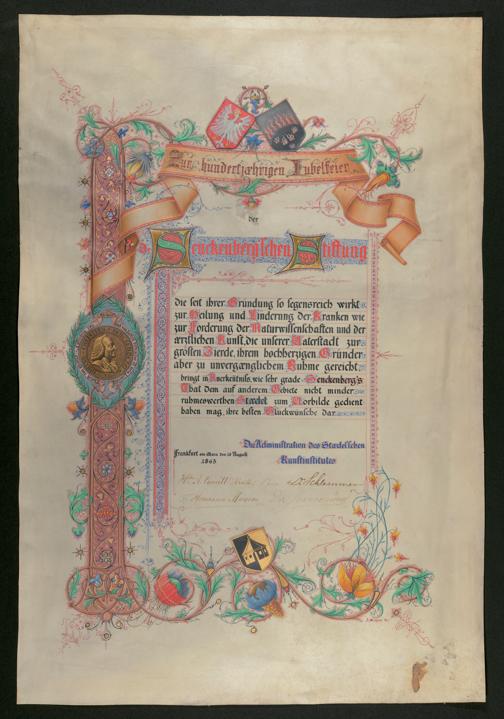 Zur hundertjæhrigen Jubelfeier
der
Dr. Senckenberg'schen Stiftung
die seit ihrer Gründung so segensreich wirkt
zur Heilung und Linderung der Kranken wie
zur Förderung der Naturwissenschaften und der
ærztlichen Kunst, die unserer Vaterstadt zur
grössten Zierde, ihrem hochherzigen Gründer
aber zu unvergænglichem Ruhme gereicht
bringt in Anerkentniss, wie sehr grade Senckenberg's
That dem auf anderem Gebiete nicht minder
ruhmeswerthen Stædel zum Vorbilde gedient
haben mag, ihre besten Glückwünsche dar
Die Administration des Stædelschen
Kunstinstitutes
Frankfurt am Main den 18 August
1863
Dr Schlemmer